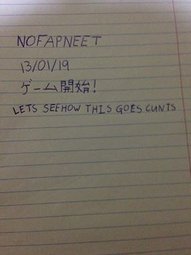 NOFAPNEET
13/01/19
ゲーム開始!
LETS SEEHOW THIS GOES CUNTS